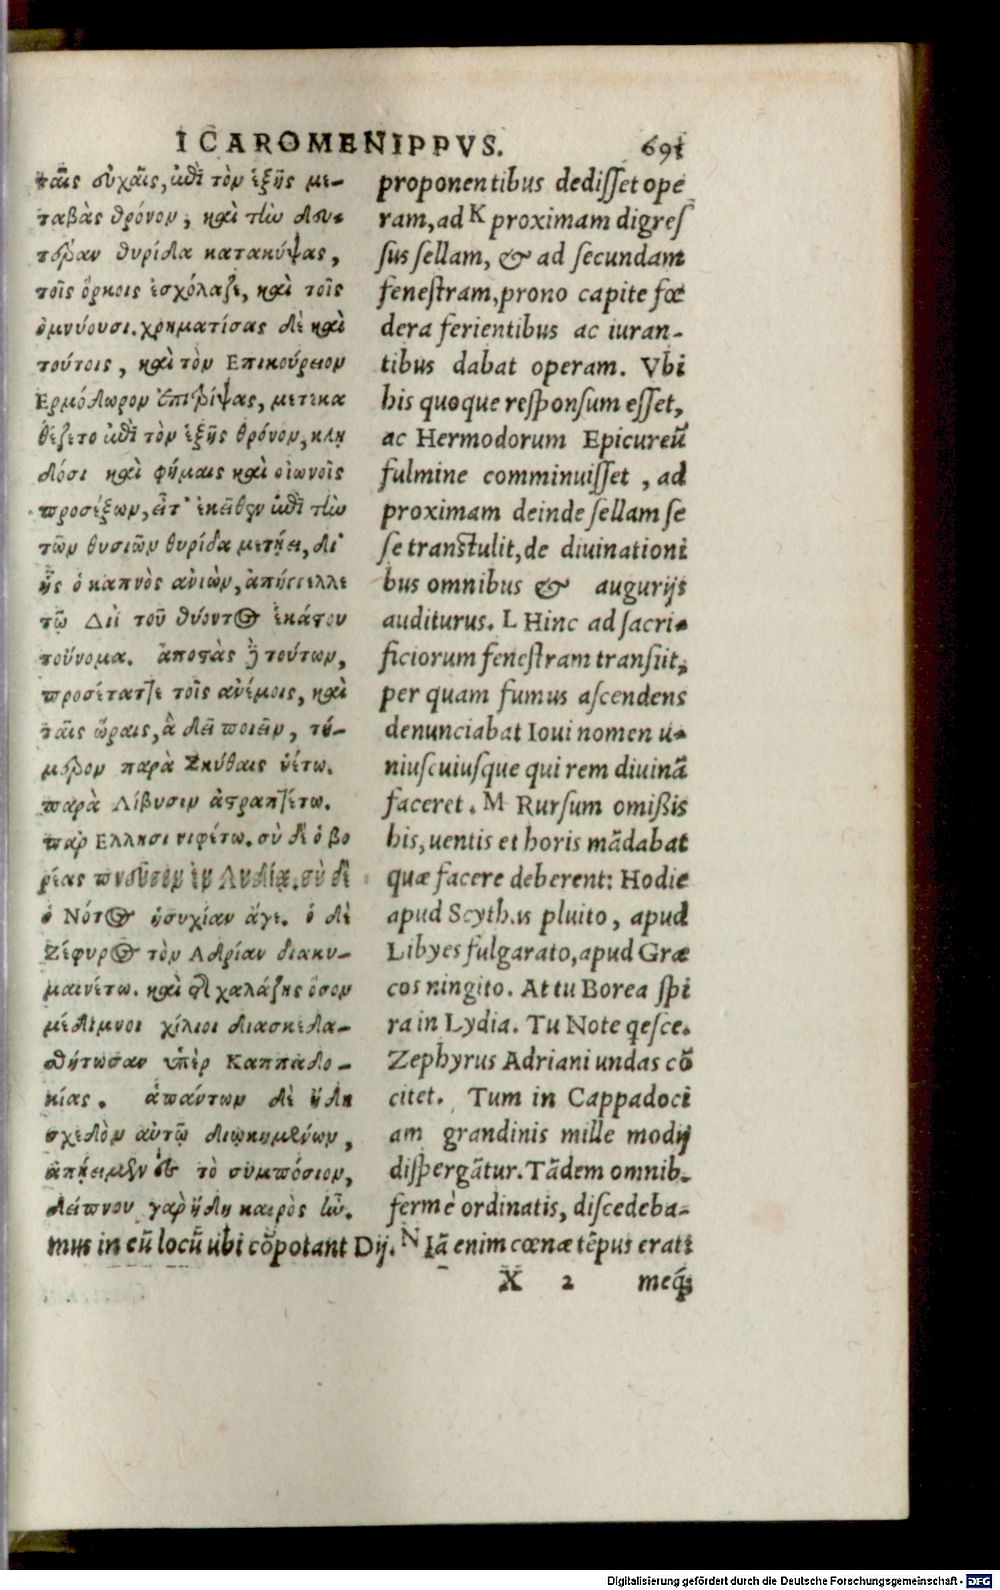 ICAROMENIPPVS. 691
ταῖς εὐχαῖς, ἐπὶ τὸν ἑξῆς με-
ταβὰς θρόνον, καὶ τὴν δευ-
τέραν θυρίδα κατακύψας,
τοῖς ὅρκοις ἐσχόλαζε, καὶ τοῖς
ὀμνύουσι. χρηματίσας δὲ καὶ
τούτοις, καὶ τὸν Επικούρειον
Ερμόδωρον ἐπιτρίψας, μετεκα
θέζετο ἐπὶ τὸν ἑξῆς θρόνον, κλη
δόσι καὶ φήμαις καὶ οἰωνοῖς
προσέξων, εἶτ' ἐκεῖθεν ἐπὶ τὴν
τῶν θυσιῶν θυρίδα μετῄει, δι'
ἧς ὁ καπνὸς ἀνιὼν, ἀπήγγελλε
τῷ Διὶ τοῦ θύοντος ἑκάστου
τοὔνομα. ἀποστὰς δὲ τούτων,
προσέταττε τοῖς ἀνέμοις, καὶ
ταῖς ὥραις, ἃ δεῖ ποιεῖν, τή-
μερον παρὰ Σκύθαις ὑέτω.
παρὰ Λίβυσιν ἀστραπτέτω.
παρ Ελλησι νιφέτω. σὺ δὲ ὁ βο
ρέας πνεῦσον ἐν Λυδίᾳ. σὺ δὲ
ὁ Νότος ἡσυχίαν ἄγε. ὁ δὲ
Ζέφυρος τὸν Αδρίαν διακυ-
μαινέτω. καὶ τῆς χαλάζης ὅσον
μέδιμνοι χίλιοι διασκεδα-
σθήτωσαν ὑπὲρ Καππαδο-
κίας. ἁπάντων δὲ ἤδη
σχεδὸν αὐτῷ διῳκημένων,
ἀπῄειμεν ἐς τὸ συμπόσιον,
δείπνου γαρ ἤδη καιρὸς ἦν.
proponentibus dedisset ope
ram, ad K proximam digres
sus sellam, & ad secundam
fenestram, prono capite fœ
dera ferientibus ac iuran-
tibus dabat operam. Vbi
his quoque responsum esset,
ac Hermodorum Epicureũ
fulmine comminuisset, ad
proximam deinde sellam se
se transtulit, de diuinationi
bus omnibus & augurijs
auditurus. L Hinc ad sacri-
ficiorum fenestram transijt,
per quam fumus ascendens
denunciabat Ioui nomen u-
niuscuiusque qui rem diuinã
faceret. M Rursum omißis
his, uentis et horis mãdabat
quæ facere deberent: Hodie
apud Scythas pluito, apud
Libyes fulgarato, apud Græ
cos ningito. At tu Borea spi
ra in Lydia. Tu Note qesce.
Zephyrus Adriani undas cõ
citet. Tum in Cappadoci
am grandinis mille modij
dispergãtur. Tãdem omnib.
fermè ordinatis, discedeba-
mus in eũ locũ ubi cõpotant Dij. N Iã enim cœnæ tẽpus erat:
X 2 meq́;
Digitalisierung gefördert durch die Deutsche Forschungsgemeinschaft - DFG